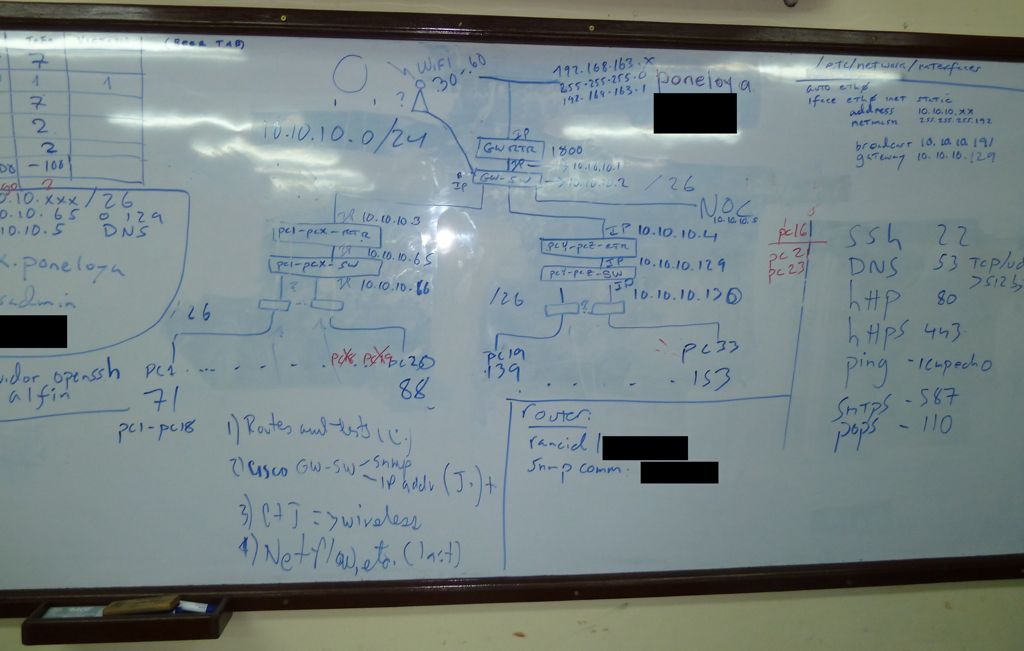 (BEER TAB)
7
1 1
7
2
2
-100
2
0.10.xxx/26
0.10.65 o 129
10.10.5 DNS
x.poneloya
sadmin
vidor openssh
alfin
WiFi
30 .. 60
?
10.10.10.0/24
192.168.163.x
255.255.255.0
192.168.163.1
poneloya
IP
GW-RTR 1800
IP → 10.10.10.1
IP
GW-SW → 10.10.10.2 /26
NOC
10.10.10.5
10.10.10.3
pc1-pcX-RTR
10.10.10.65
pc1-pcX-SW
10.10.10.66
/26
pc1 ... . . . . pc18 pc19 pc20
71 88
pc1-pc18
IP 10.10.10.4
pcY-pcZ-RTR
IP 10.10.10.129
pcY-pcZ-SW
IP 10.10.10.130
/26
?
pc19 pc33
139 . . . . . . 153
/etc/network/interfaces
auto eth0
iface eth0 inet static
address 10.10.10.xx
netmask 255.255.255.192
broadcast 10.10.10.191
gateway 10.10.10.129
pc16
pc21
pc23
ssh 22
DNS 53 Tcp/ud
>512b
http 80
https 443
ping - icmpecho
smtps - 587
pops - 110
1) Routes and tests (C.)
2) Cisco GW-SW - snmp
- IP addr (J.) +
3) C+J => wireless
4) Netflow, etc. (last)
router:
rancid /
snmp comm.